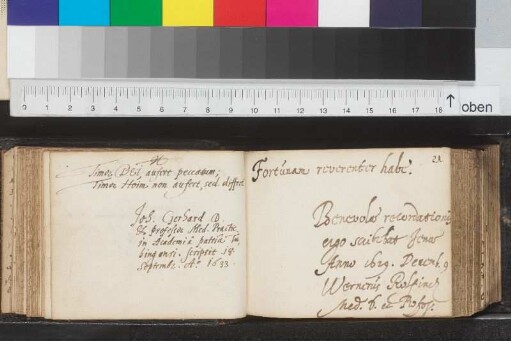 0 1 2 3 4 5 6 7 8 9 10 11 12 13 14 15 16 17 18 oben
Timor DEI, aufert peccatum,
Timor Hoim non aufert, sed differt
Joh. Gerhard D.
& Professor Med. Practic.
in Academiâ patriâ Tu
bingensi. scripsit 18.
Septemb. Aº. 1633.
21
Fortunam reverenter habe.
Benevolae recordationis
ergo scribebat Jenae
Anno 1629. Decemb. 9
Wernerus Rolfinck
Med. D. et Profess.